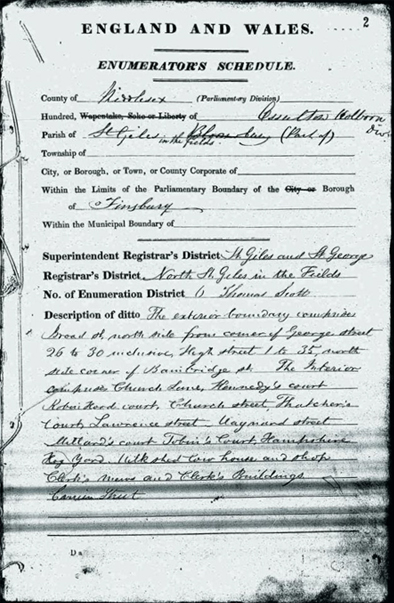 2
ENGLAND AND WALES.
ENUMERATOR'S SCHEDULE.
County of Middlesex (Parliamentary Division)
Hundred, Wapentake, Soke or Liberty of Ossulton Holborn Div
Parish of St Giles in the fields & Bloomsbury (Part of)
Township of
City, or Borough, or Town, or County Corporate of
Within the Limits of the Parliamentary Boundary of the City or Borough
of Finsbury
Within the Municipal Boundary of
Superintendent Registrar's District St Giles and St George
Registrar's District North St Giles in the Fields
No. of Enumeration District Thomas Scott
Description of ditto The exterior boundary comprises
Broad st, north side from corner of George street
26 to 30 inclusive, High street 1 to 35, north
side corner of Bambridge st. The Interior
comprises Church Lane, Kennedy's court
Robin Hood court, Church street, Thatcher's
Court, Lawrence street Maynard street
Millard's court Tobin's Court, Hampshire
Hog Yard. Milkshed Cow house and shop
Clerk's mews and Clerk's Buildings
Carrier Street
D a